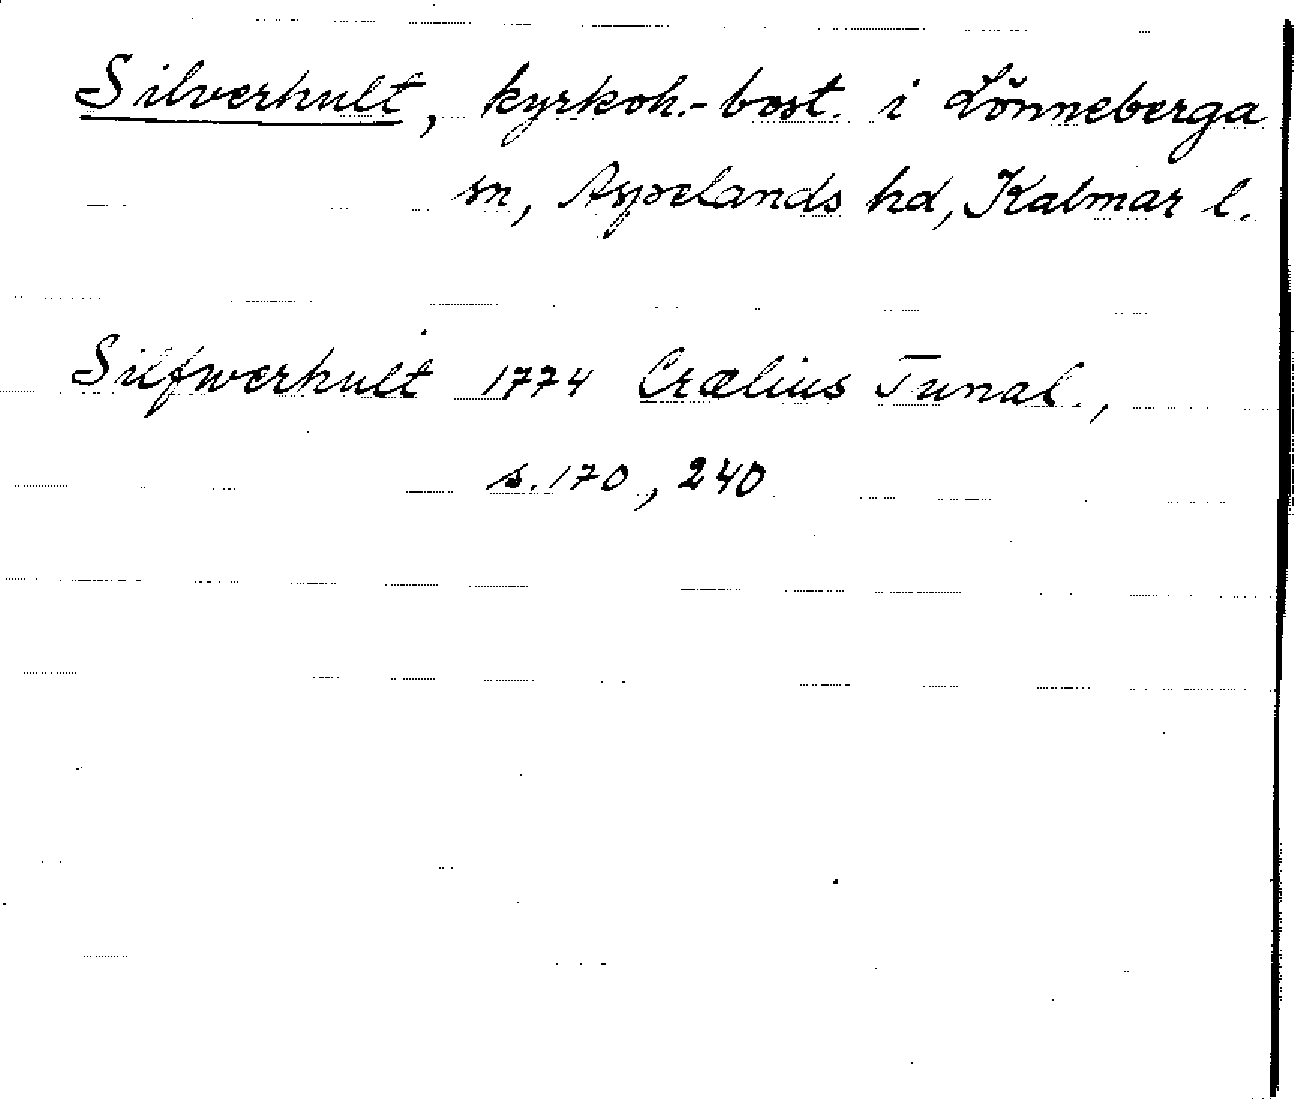 Silverhult, kyrkoh.-bost. i Lönneberga
sn, Aspelands hd, Kalmar l.
Silfwerhult 1774 Crælius Tunal.,
s. 170, 240